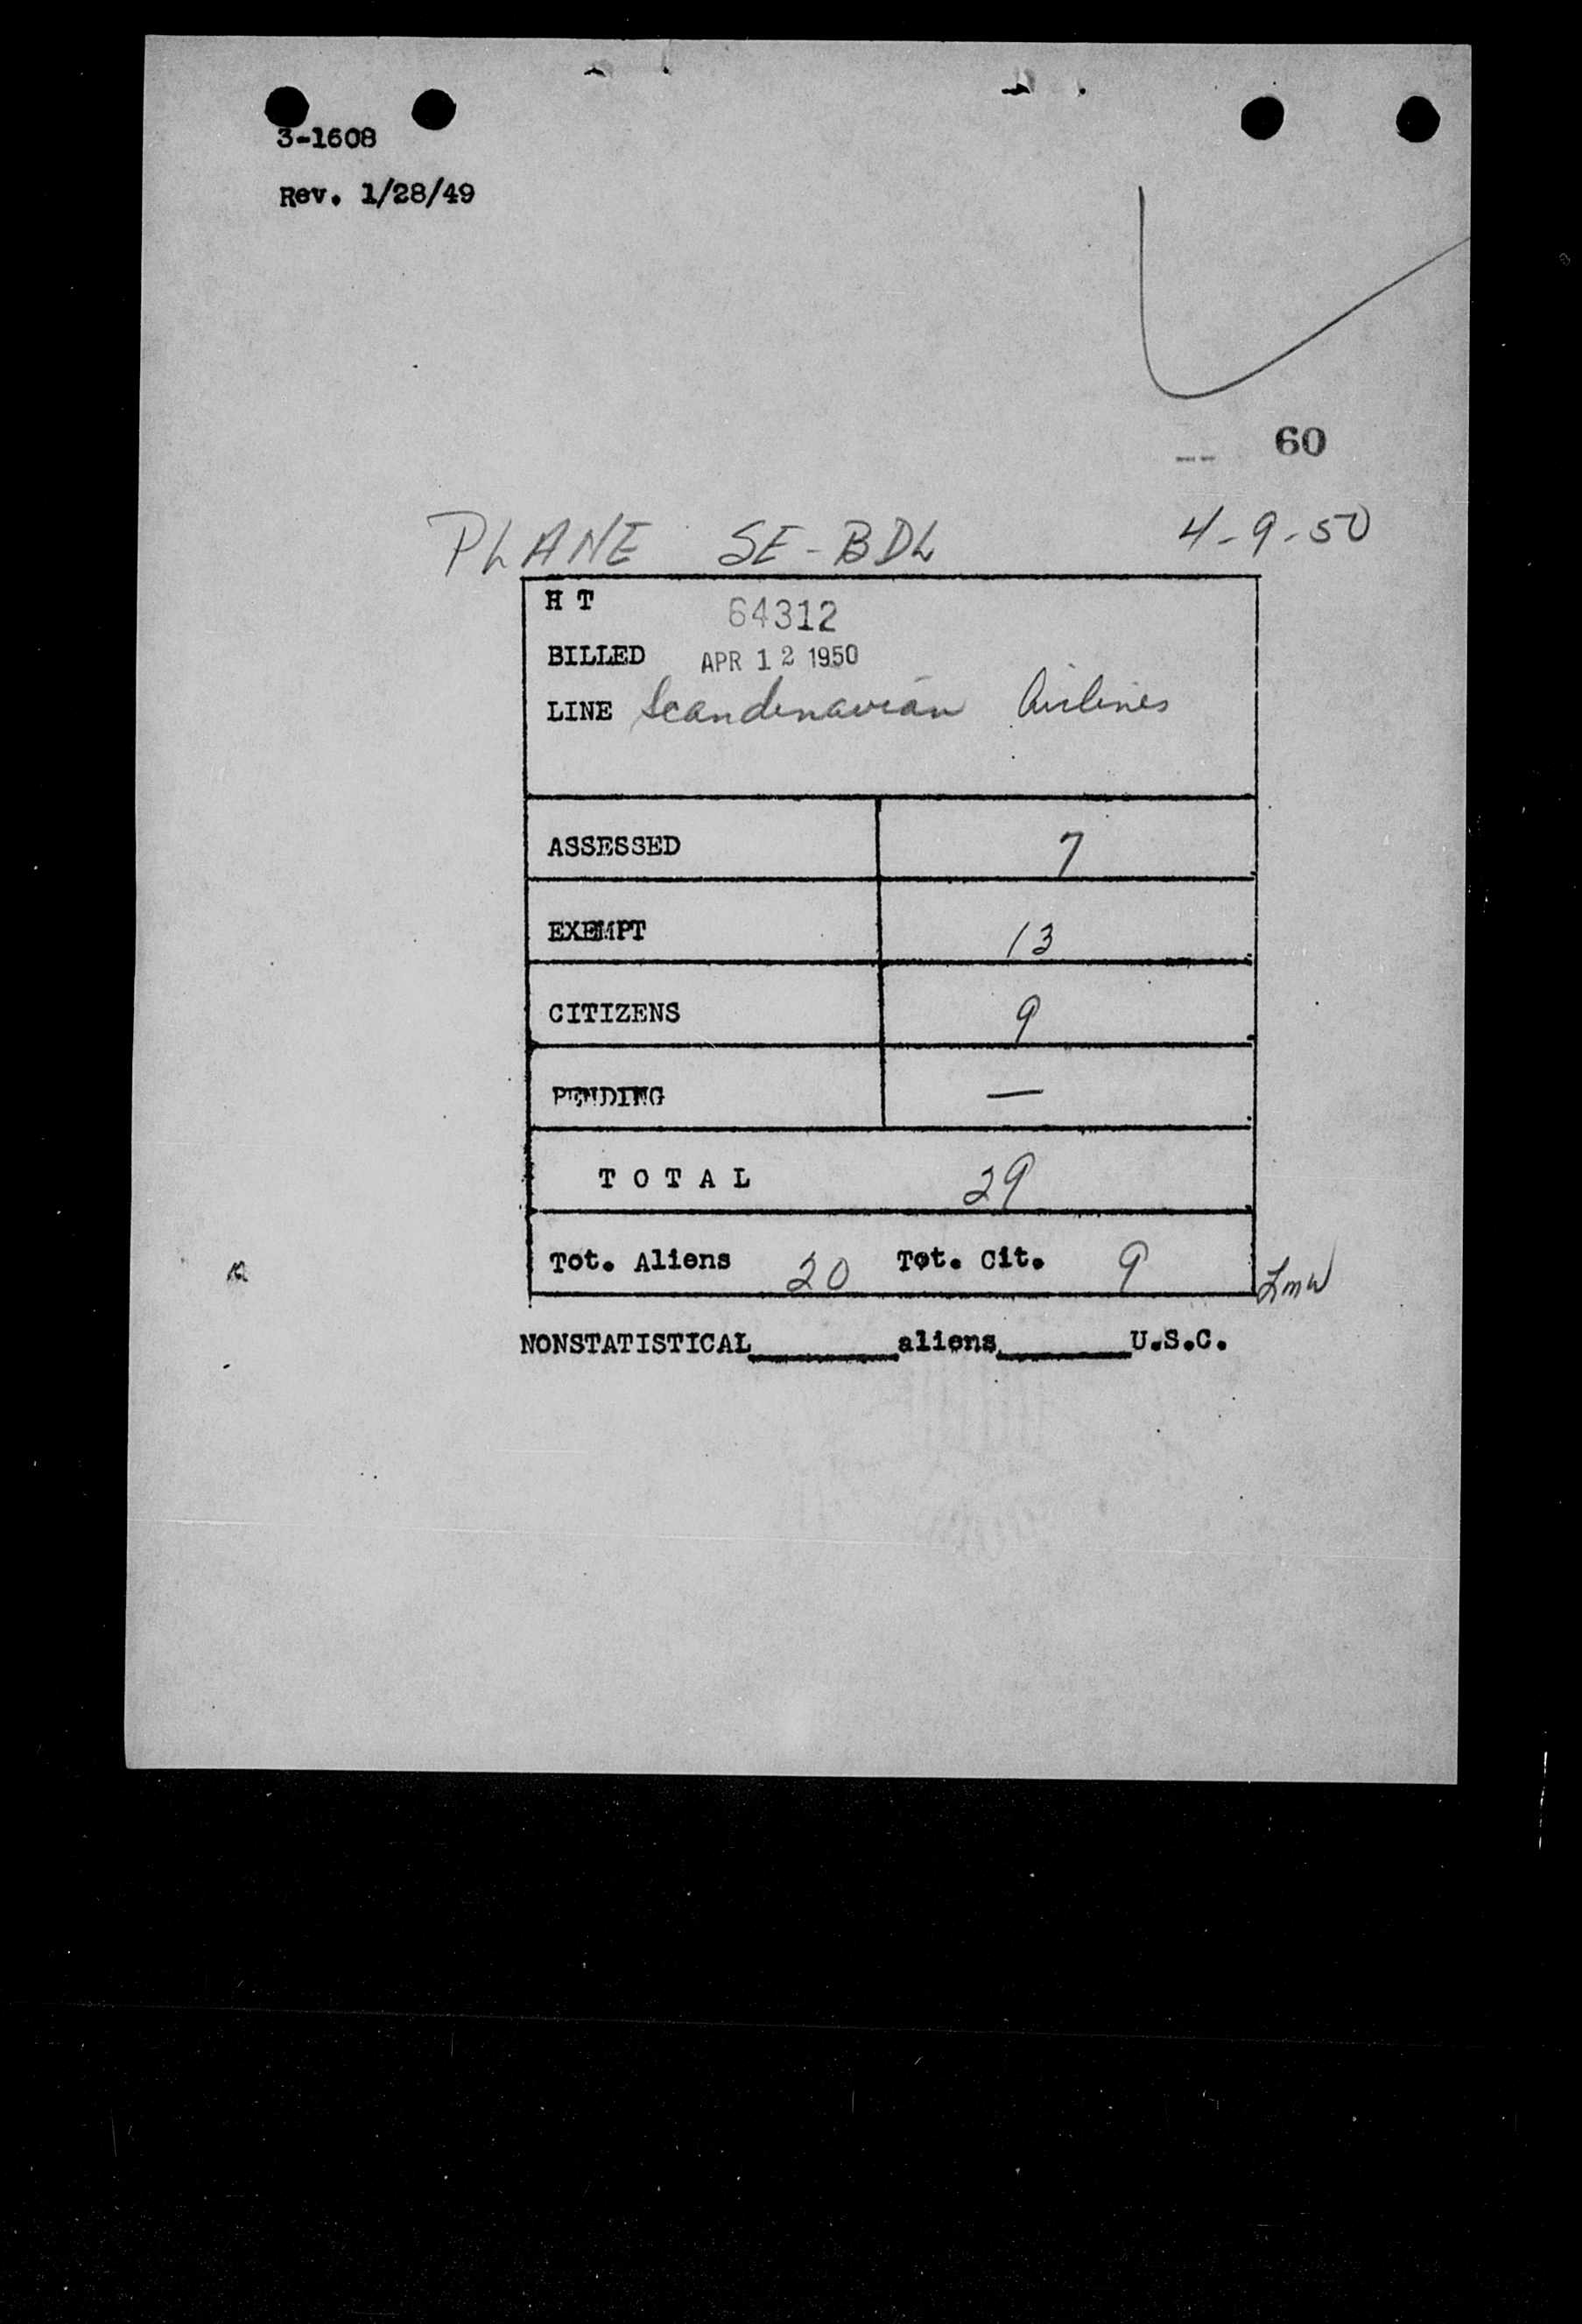 3-1608
Rev. 1/28/49
60
PLANE SE-BDL 4-9-50
H T 64312
BILLED APR 12 1950
LINE Scandinavian Airlines
ASSESSED 7
EXEMPT 13
CITIZENS 9
PENDING —
TOTAL 29
Tot. Aliens 20 Tot. Cit. 9
LMW
NONSTATISTICAL________aliens_______U.S.C.